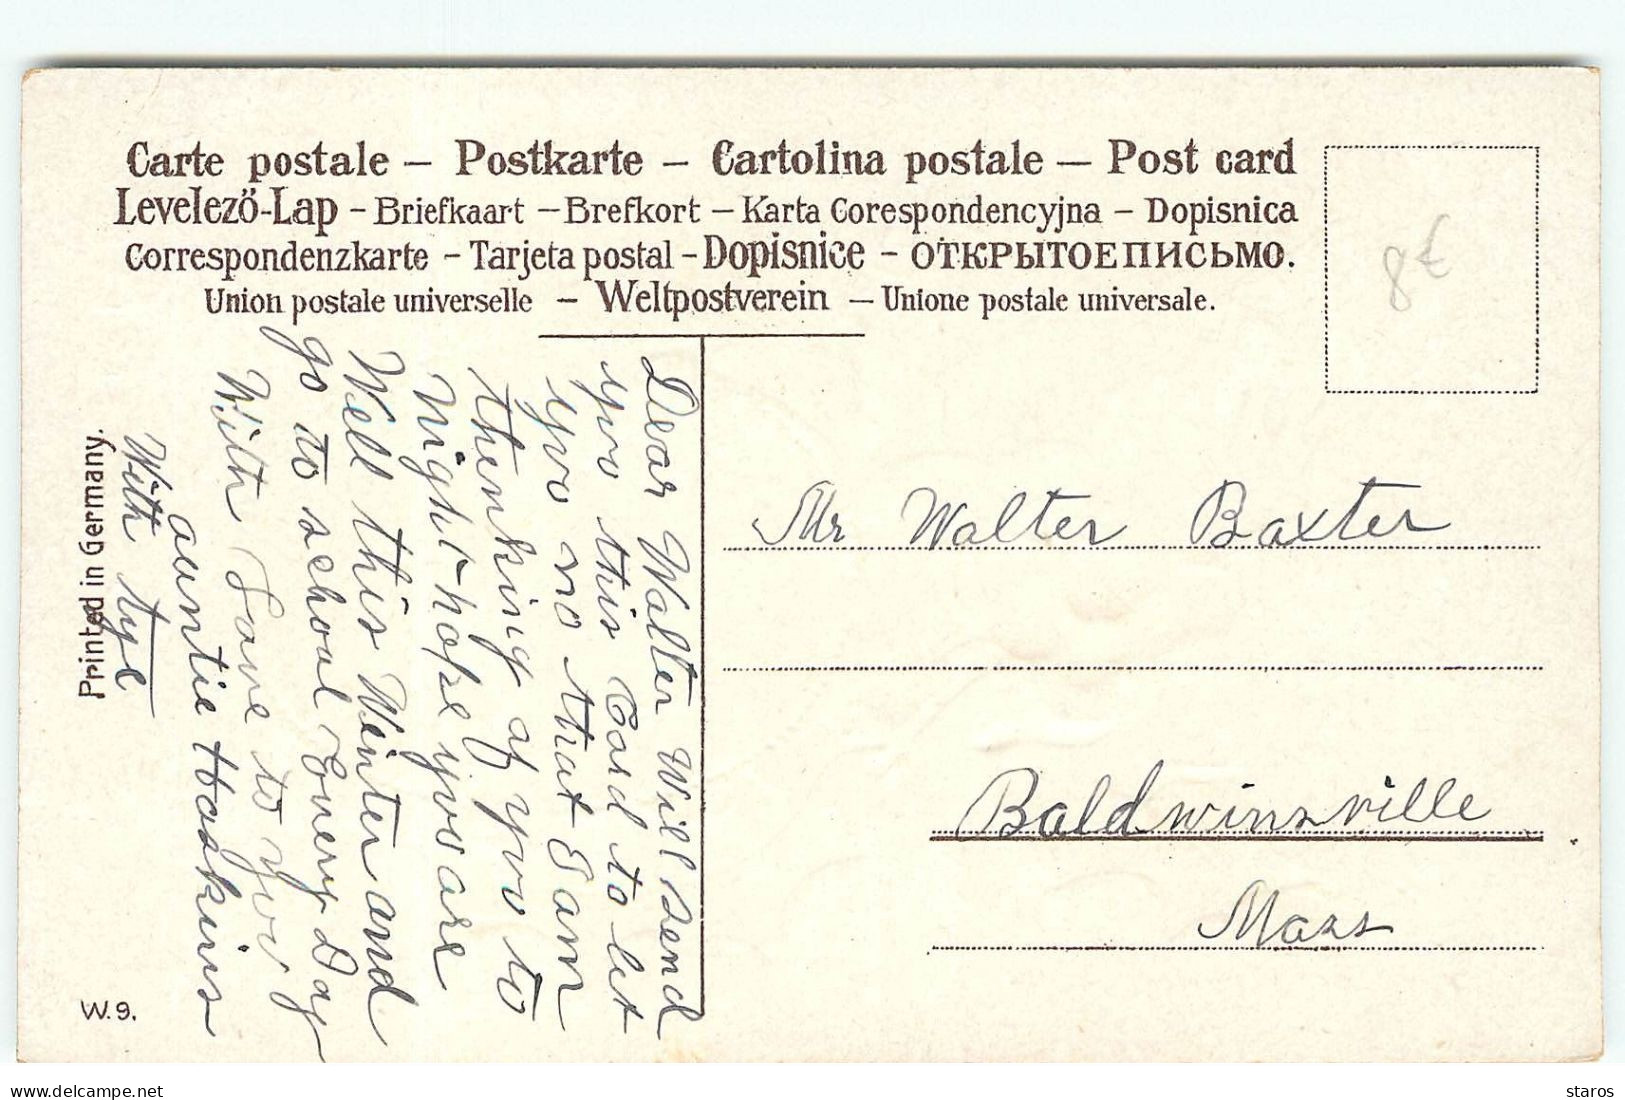 Carte postale – Postkarte – Cartolina postale – Post card
Levelező-Lap – Briefkaart – Brefkort – Karta Corespondencyjna – Dopisnica
Correspondenzkarte – Tarjeta postal – Dopisnice – ОТКРЫТОЕ ПИСЬМО.
Union postale universelle – Weltpostverein – Unione postale universale.
8€
Dear Walter Will send
you this Card to let
you no that I am
thenking of you to
Night hope you are
Well this Winter and
go to school Every Day
With Love to you
auntie Haskins
With
Mr Walter Baxter
Baldwinsville
Mass
Printed in Germany.
W. 9.
www.delcampe.net
staros